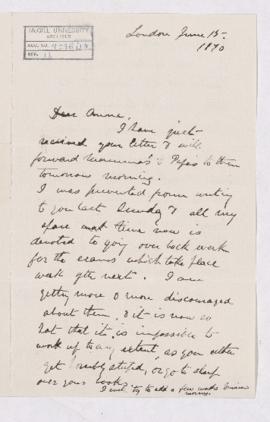 McGILL UNIVERSITY
ARCHIVES
ACC. NO.
REF. 11
London June 15.
1890
Dear Anne,
I have just
received your letter & will
forward Mamma's & Papa's to them
tomorrow morning.
I was prevented from writing
to you last Sunday & all my
spare time now is
devoted to going over back work
for the exams which take place
week after next. I am
getting more & more discouraged
about them, & it is now so
hot that it is impossible to
work up to any extent, as you either
get horribly stupid, or go to sleep
over your books.
I will try to add a few words tomorrow
morning.